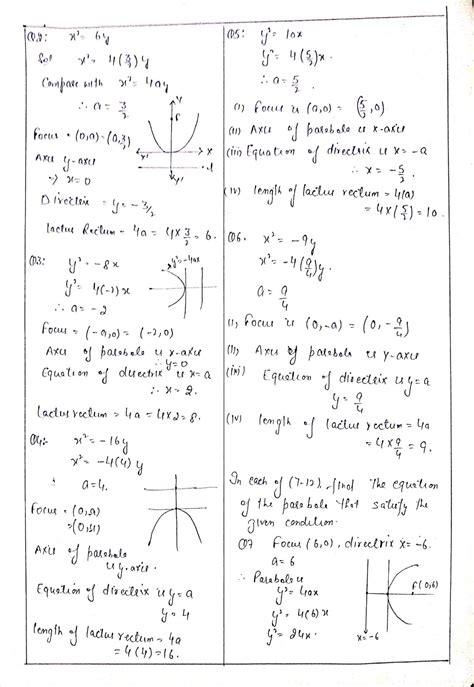 Q2: x² = 6y
Sol x² = 4(3/2)y
Compare with x² = 4ay
∴ a = 3/2
Y
F
x' x
Y'
Focus = (0,a) = (0,3/2)
Axis y-axis
⇒ x = 0
Directrix = y = -3/2
lactus Rectum = 4a = 4×3/2 = 6.
Q3: y² = -8x
y² = -4ax
y² = 4(-2)x
∴ a = -2
Focus = (-a,0) = (-2,0)
Axis of parabola is x-axis
∴ y=0
Equation of directrix is x=a
∴ x = 2.
lactus rectum = 4a = 4×2 = 8.
Q4:- x² = -16y
x² = -4(4)y
a = 4.
Focus =
Axis of parabola
is y.axis.
Equation of directrix is y = a
y = 4
length of lactus rectum = 4a
= 4(4) = 16.
Q5: y² = 10x
y² = 4(5/2)x.
∴ a = 5/2
(i) Focus is (a,0) = (5/2,0)
(ii) Axis of parabola is x-axis
(iii) Equation of directrix is x = -a
∴ x = -5/2.
(iv) length of lactus rectum = 4(a)
= 4×(5/2) = 10.
Q6. x² = -9y
x² = -4(9/4)y.
a = 9/4
(i) Focus is (0,-a) = (0,-9/4)
(ii) Axis of parabola is y-axis
(iii) Equation of directrix is y = a
y = 9/4
(iv) length of lactus rectum = 4a
= 4×9/4 = 9.
In each of (7-12), find the equation
of the parabola that satisfy the
given condition.
Q7 Focus (6,0), directrix x = -6.
a = 6
∴ Parabola is
y² = 4ax
y² = 4(6)x
y² = 24x.
F(0,6)
x = -6